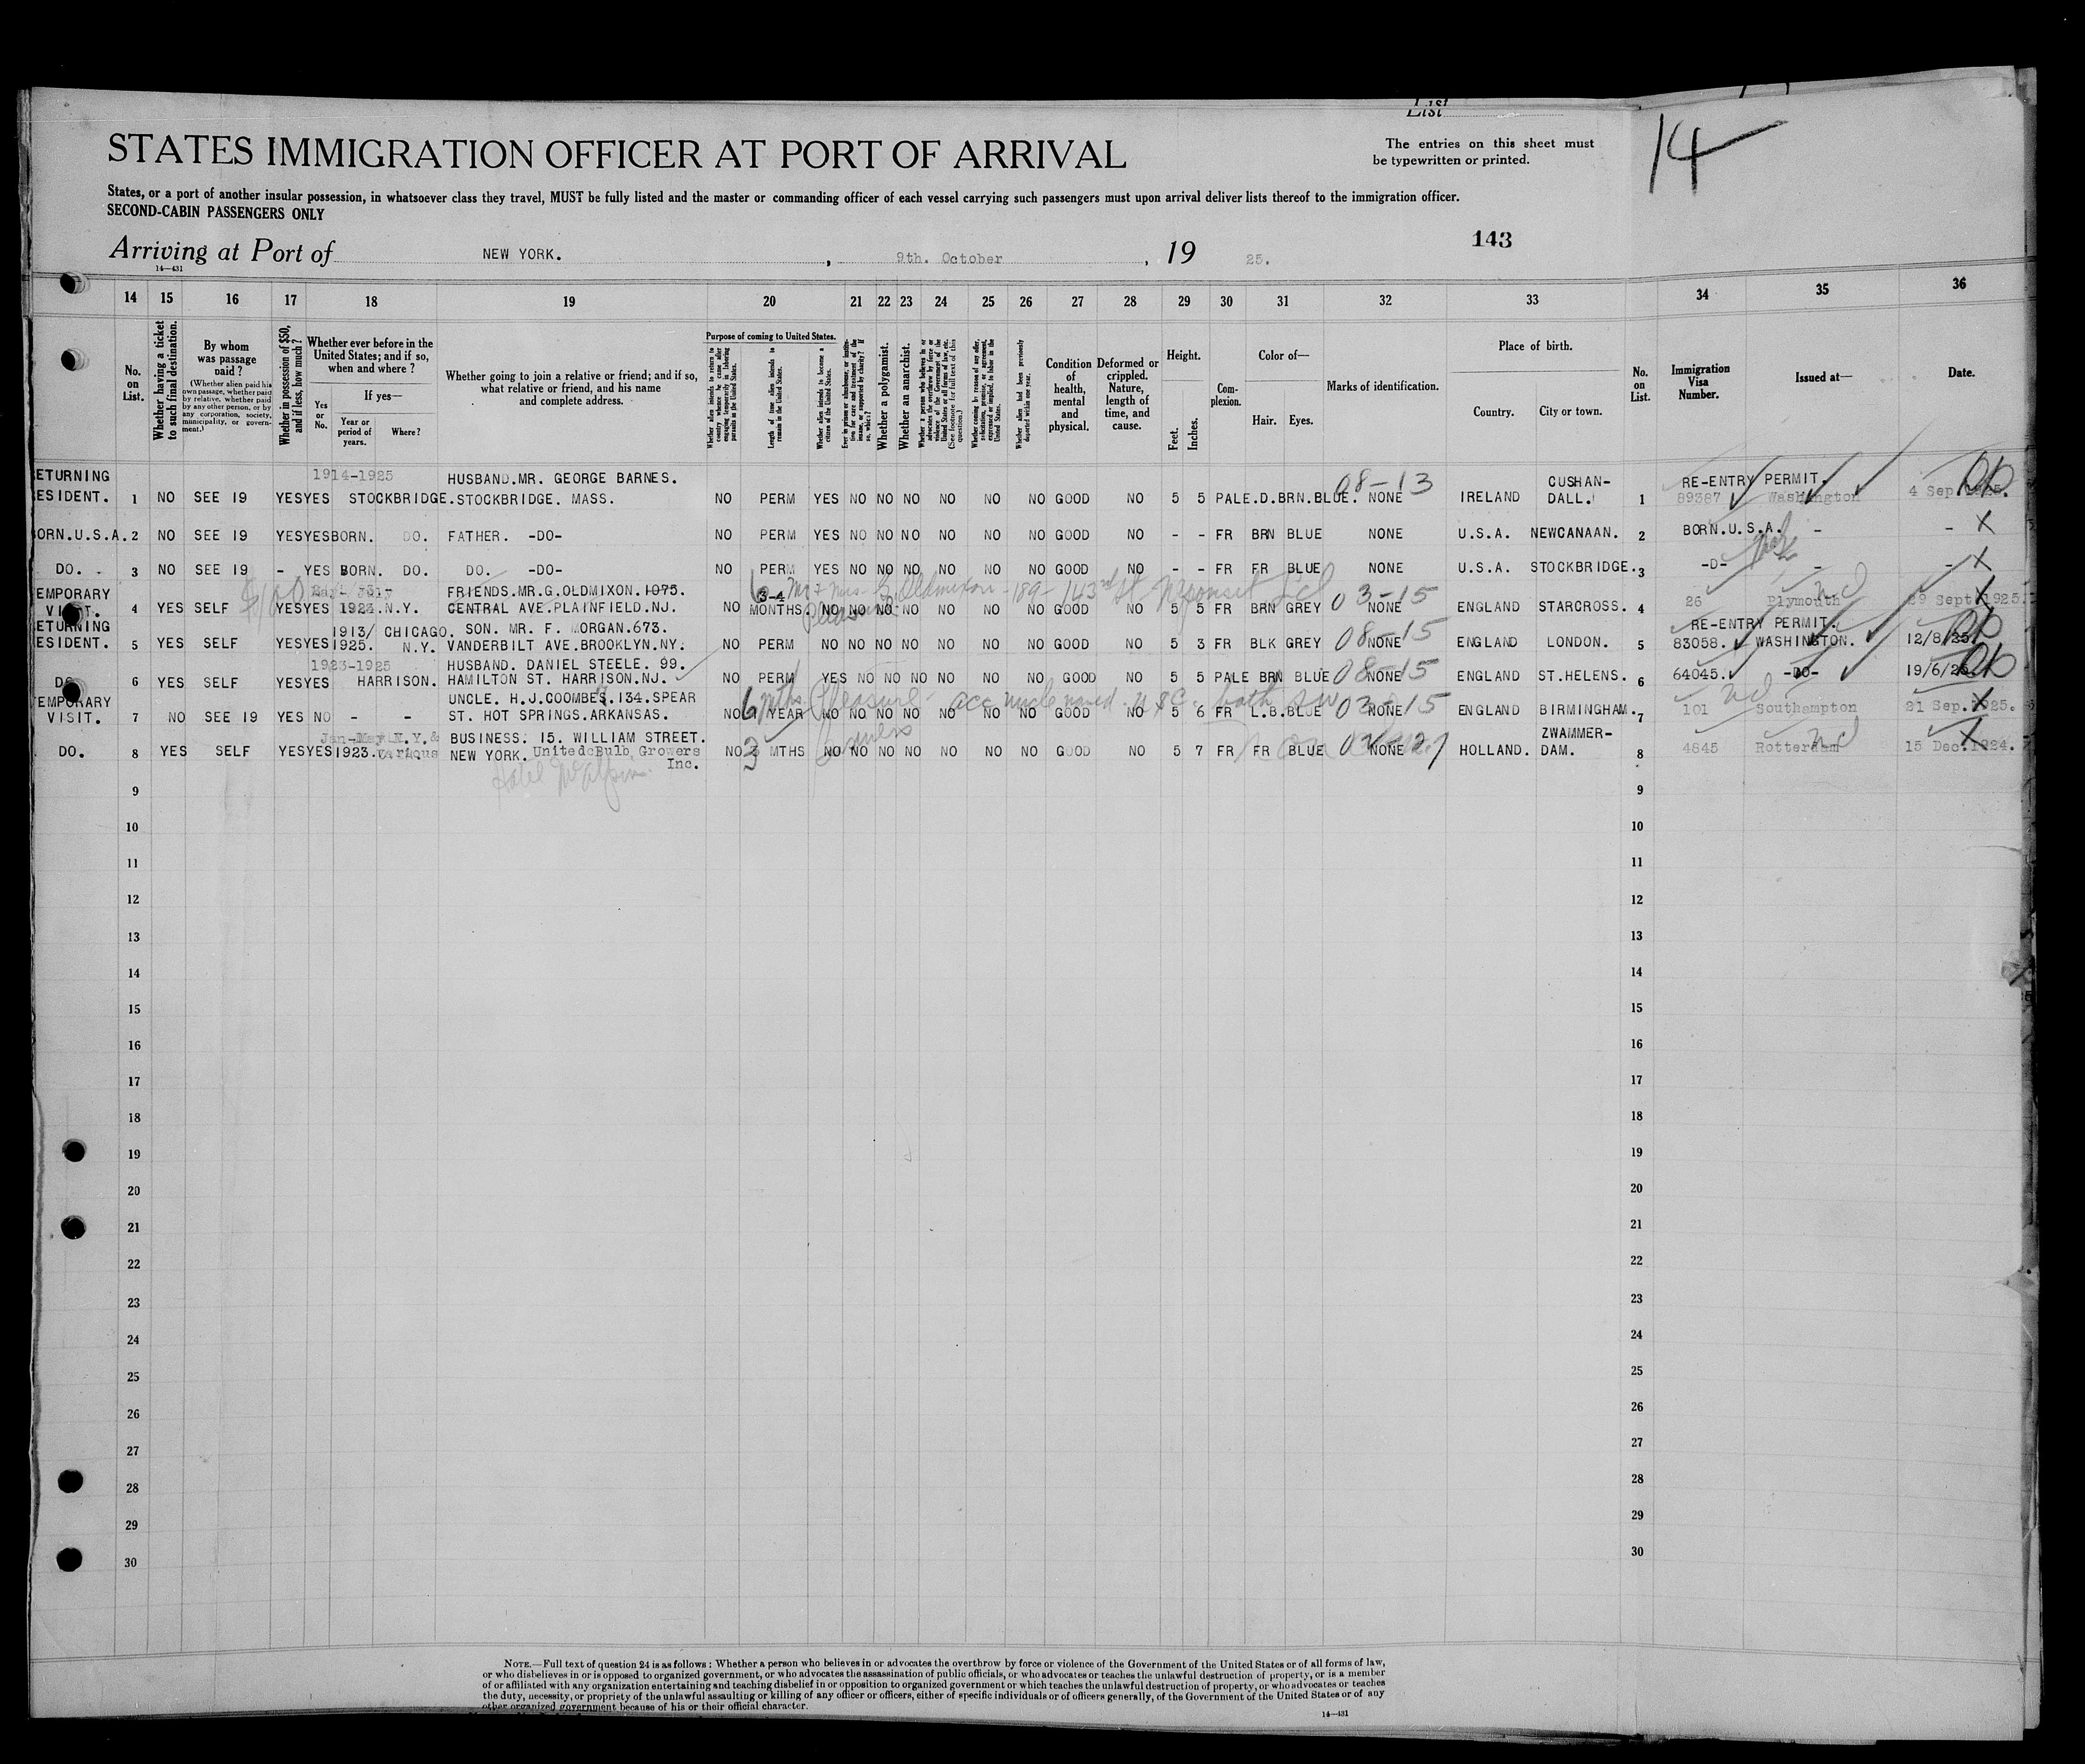 List
List
14
STATES IMMIGRATION OFFICER AT PORT OF ARRIVAL
The entries on this sheet must
be typewritten or printed.
States, or a port of another insular possession, in whatsoever class they travel, MUST be fully listed and the master or commanding officer of each vessel carrying such passengers must upon arrival deliver lists thereof to the immigration officer.
SECOND-CABIN PASSENGERS ONLY
143
Arriving at Port of NEW YORK. , 9th. October , 19 25.
14—431
14 15 16 17 18 19 20 21 22 23 24 25 26 27 28 29 30 31 32 33 34 35 36
No. on List.
Whether having a ticket to such final destination.
By whom was passage paid?
(Whether alien paid his own passage, whether paid by relative, whether paid by any other person, or by any corporation, society, municipality, or government.)
Whether in possession of $50, and if less, how much?
Whether ever before in the United States; and if so, when and where?
Yes or No.
If yes—
Year or period of years.
Where?
Whether going to join a relative or friend; and if so, what relative or friend, and his name and complete address.
Purpose of coming to United States.
Length of time alien intends to remain in the United States.
Whether alien intends to become a citizen of the United States.
Whether a polygamist.
Whether an anarchist.
Condition of health, mental and physical.
Deformed or crippled. Nature, length of time, and cause.
Height.
Feet. Inches.
Complexion.
Color of—
Hair. Eyes.
Marks of identification.
Place of birth.
Country. City or town.
No. on List.
Immigration Visa Number.
Issued at—
Date.
ETURNING 1914-1925 HUSBAND.MR. GEORGE BARNES. 08-13 CUSHAN- RE-ENTRY PERMIT.
ESIDENT. 1 NO SEE 19 YES YES STOCKBRIDGE. STOCKBRIDGE. MASS. NO PERM YES NO NO NO NO NO NO GOOD NO 5 5 PALE.D.BRN.BLUE. NONE IRELAND DALL. 1 89387 Washington 4 Sep. 1925.
ORN.U.S.A. 2 NO SEE 19 YES YES BORN. DO. FATHER. -DO- NO PERM YES NO NO NO NO NO NO GOOD NO - - FR BRN BLUE NONE U.S.A. NEWCANAAN. 2 BORN.U.S.A. - - X
DO. - 3 NO SEE 19 - YES BORN. DO. DO. -DO- NO PERM YES NO NO NO NO NO NO GOOD NO - - FR FR BLUE NONE U.S.A. STOCKBRIDGE. 3 -D- - - X
6 Mr & Mrs G Oldmixon - 189 - 143rd St
EMPORARY May- July FRIENDS.MR.G.OLDMIXON.1075. 3-4 03-15
VISIT. 4 YES SELF YES YES 1923.N.Y. CENTRAL AVE.PLAINFIELD.NJ. NO MONTHS. NO NO NO NO NO NO NO GOOD NO 5 5 FR BRN GREY NONE ENGLAND STARCROSS. 4 26 Plymouth 29 Sept 1925. X
Pleasure
ETURNING 1913/ CHICAGO. SON. MR. F. MORGAN.673. 08-15 RE-ENTRY PERMIT.
ESIDENT. 5 YES SELF YES YES 1925. N.Y. VANDERBILT AVE.BROOKLYN.NY. NO PERM NO NO NO NO NO NO NO GOOD NO 5 3 FR BLK GREY NONE ENGLAND LONDON. 5 83058. WASHINGTON. 12/8/25.
1923-1925 HUSBAND. DANIEL STEELE. 99. 08-15
DO 6 YES SELF YES YES HARRISON. HAMILTON ST. HARRISON.NJ. NO PERM YES NO NO NO NO NO NO GOOD NO 5 5 PALE BRN BLUE NONE ENGLAND ST.HELENS. 6 64045. -DO- 19/6/25.
EMPORARY UNCLE. H.J.COOMBES.134.SPEAR 6 mths Pleasure acc uncle named 03-15
VISIT. 7 NO SEE 19 YES NO - - ST. HOT SPRINGS.ARKANSAS. NO YEAR NO NO NO NO NO NO NO GOOD NO 5 6 FR L.B.BLUE NONE ENGLAND BIRMINGHAM. 7 101 Southampton 21 Sep. 1925. X
Jan-May N.Y.& BUSINESS. 15. WILLIAM STREET. ZWAMMER-
DO. 8 YES SELF YES YES 1923. various NEW YORK. United Bulb Growers Inc. NO 3 MTHS NO NO NO NO NO NO NO GOOD NO 5 7 FR FR BLUE NONE HOLLAND. DAM. 8 4845 Rotterdam 15 Dec. 1924. X
Hotel McAlpin
9 9
10 10
11 11
12 12
13 13
14 14
15 15
16 16
17 17
18 18
19 19
20 20
21 21
22 22
23 23
24 24
25 25
26 26
27 27
28 28
29 29
30 30
NOTE.—Full text of question 24 is as follows: Whether a person who believes in or advocates the overthrow by force or violence of the Government of the United States or of all forms of law,
or who disbelieves in or is opposed to organized government, or who advocates the assassination of public officials, or who advocates or teaches the unlawful destruction of property, or is a member
of or affiliated with any organization entertaining and teaching disbelief in or opposition to organized government or which teaches the unlawful destruction of property, or who advocates or teaches
the duty, necessity, or propriety of the unlawful assaulting or killing of any officer or officers, either of specific individuals or of officers generally, of the Government of the United States or of any
other organized government because of his or their official character.
14—431